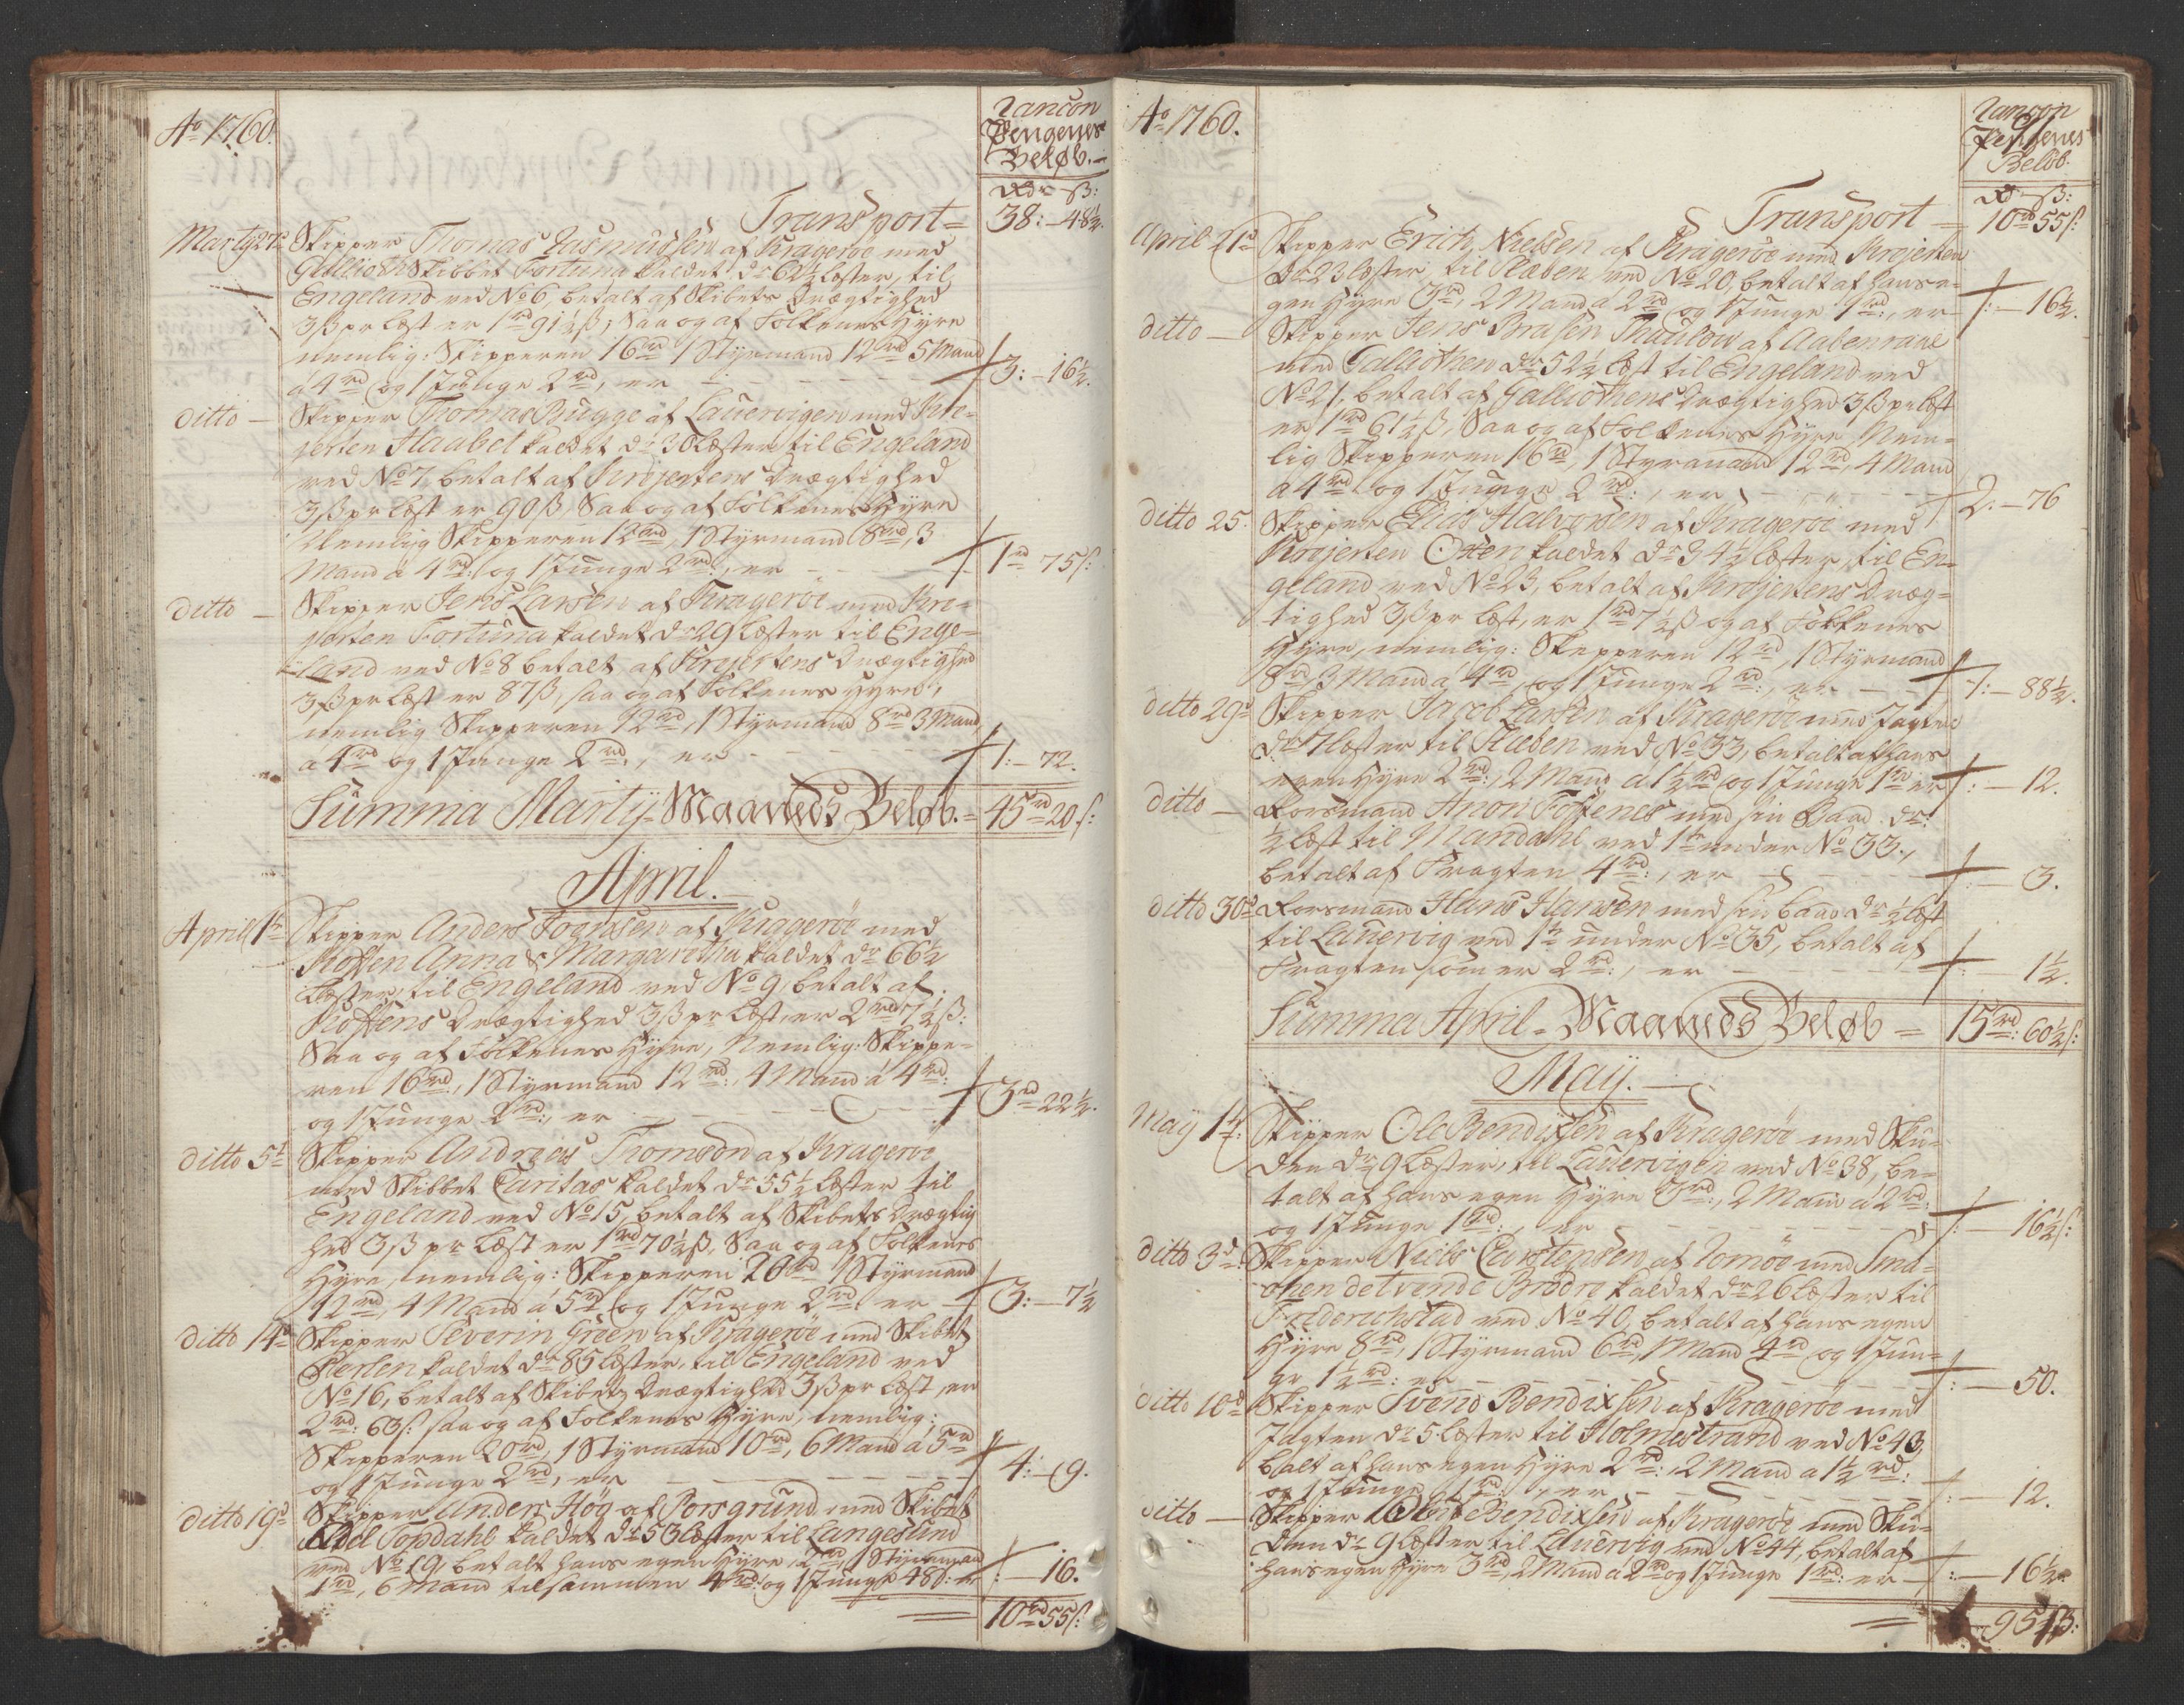 Ao 1760.
Rancon
Pengenes
Beløb.
Rdr ß:
Transport = 38: - 48½.
Marty 27de Skipper Thomas Rasmussen af Krageröe med
Gallioth Skibbet Fortuna kaldet dr. 62½ læster, til
Engeland ved No 6, betalt af Skibets drægtighed
3ß pr læst er 1rd 91½ß, Saa og af Folkenes Hyre
nemlig: Skipperen 16rd 1 Styrmand 12rd 5 Mand
a 4rd og 1 Junge 2rd, er - 3: - 16½.
ditto - Skipper Thomas Bugge af Lauervigen med Kre-
jerten Haabet kaldet dr 30 læster til Engeland
ved No 7, betalt af Krejertens drægtighed
3ß pr læst er 90ß, Saa og af Folkenes Hyre
Nemlig Skipperen 12rd, 1 Styrmand 8rd, 3
Mand a 4rd: og 1 Junge 2rd:, er - 1rd 75ß:
ditto - Skipper Jens Larsen af Krageröe med Kre-
jerten Fortuna kaldet dr 29 læster til Enge-
land ved No 8 betalt af Krejertens drægtighed
3ß pr læst er 87ß, saa og af Folkenes hyre,
nemlig Skipperen 12rd, 1 Styrmand 8rd 3 Mand
a 4rd og 1 Junge 2rd., er - 1: - 72.
Summa Marty Maaneds Beløb. = 45rd 20ß:
April.
April 1te Skipper Anders Joensen af Krageröe med
Koffen Anna & Margaretha kaldet dr 66½
læster, til Engeland ved No 9, betalt af
Koffens drægtighed 3ß pr læst, er 2rd 7½ß:
Saa og af Folkenes Hyre, Nemlig: Skippe-
ren 16rd, 1 Styrmand 12rd:, 4 Mand a 4rd:
og 1 Junge 2rd:, er - 3rd 22½.
ditto 5te Skipper Andreas Thomson af Krageröe
med Skibbet Caritas kaldet dr 55½ læster til
Engeland ved No 15, betalt af Skibets drægtig
hed 3ß pr læst er 1rd 70½ß, Saa og af Folkenes
Hyre, nemlig: Skipperen 20rd 1 Styrmand
12rd, 4 Mand a 5rd og 1 Junge 2rd er - 3: - 7½
ditto 14de Skipper Severin Green af Krageröe med Skibet
Perlen kaldet dr 85 læster, til Engeland ved
No 16, betalt af Skibets drægtighed 3ß pr læst, er
2rd: 63ß: saa og af Folkenes Hyre, nemlig:
Skipperen 20rd, 1 Styrmand 10rd, 6 Mand a 5rd
og 1 Junge 2rd, er - 4: - 9.
ditto 19de Skipper Anders Höy af Porsgrund med Skibet
Adel Topdahl kaldet dr 53 læster til Langesund
ved No 19, betalt hans egen Hyre 2rd, 1 Styrmand
1rd, 6 Mand tilsammen 4rd: og 1 Junge 48ß: er : - 16.
10rd 55ß:
Ao 1760.
Rancon
Pengenes
Beløb.
Rd - ß:
Transport = 10rd 55ß:
April 21de Skipper Erich Nielsen af Krageröe med Krejerten
dr 23 læster, til Næben ved No 20, betalt af hans e-
gen Hyre 3rd, 2 Mand a 2rd og 1 Junge 1rd:, er - : - 16½.
ditto - Skipper Jens Brasen Thaulow af Aabenraae
med Galliothen dr 52½ læst til Engeland ved
No 21, betalt af Galliothens drægtighed 3ß pr læst
er 1rd 61½ß, Saa og af Folkenes Hyre, Nem-
lig Skipperen 16rd, 1 Styrmand 12rd, 4 Mand
a 4rd og 1 Junge 2rd:, er - 2. - 76
ditto 25. Skipper Elias Halvorsen af Krageröe med
Krejerten Osten kaldet dr 34½ læster, til En-
geland ved No 23, betalt af Krejertens dræg-
tighed 3ß pr læst, er 1rd 7½ß og af Folkenes
Hyre, nemlig: Skipperen 12rd, 1 Styrmand
8rd, 3 Mand a 4rd, og 1 Junge 2rd:, er - 1: - 88½.
ditto 29de Skipper Jacob Larsen af Krageröe med Jagten
dr 7 læster til Næben ved No 33, betalt af hans
egen Hyre 2rd:, 2 Mand a 1½rd og 1 Junge 1rd er : - 12.
ditto - Rorsmand Anon Fossenes med sin Baad dr:
½ læst til Mandahl ved 1te under No 33.,
betalt af Fragten 4rd:, er - : - 3.
ditto 30de Rorsmand Hans Hansen med sin baad dr ½ læst
til Lauervig ved 1te under No 35, betalt af
Fragten som er 2rd:, er - : - 1½.
Summa April - Maaneds Beløb = 15rd: 60½ß:
May.
May 1te: Skipper Ole Bendixsen af Krageröe med Sku-
den dr 9 læster, til Lauervigen ved No 38, be-
talt af hans egen Hyre 3rd:, 2 Mand a 2rd:
og 1 Junge 1rd:, er - : - 16½ß:
ditto 3de: Skipper Niels Carstensen af Romöe med Sma-
ken de tvende Brödre kaldet dr 26 læster til
Friderichstad ved No 40, betalt af hans egen
Hyre 8rd, 1 Styrmand 6rd, 1 Mand 4rd og 1 Jun-
ge 1½rd: er - : - 50.
ditto 10de Skipper Svend Bendixsen af Krageröe med
Jagten dr 5 læster til Holmestrand ved No 43,
betalt af hans egen Hyre 2rd:, 2 Mand a 1½rd:
og 1 Junge 1rd:, er - : - 12.
ditto - Skipper Ole Bendixsen af Krageröe med Sku-
den dr 9 læster til Lauervig ved No 44, betalt af
hans egen Hyre 3rd, 2 Mand a 2rd og 1 Junge 1rd: er - : - 16½.
- 95ß: